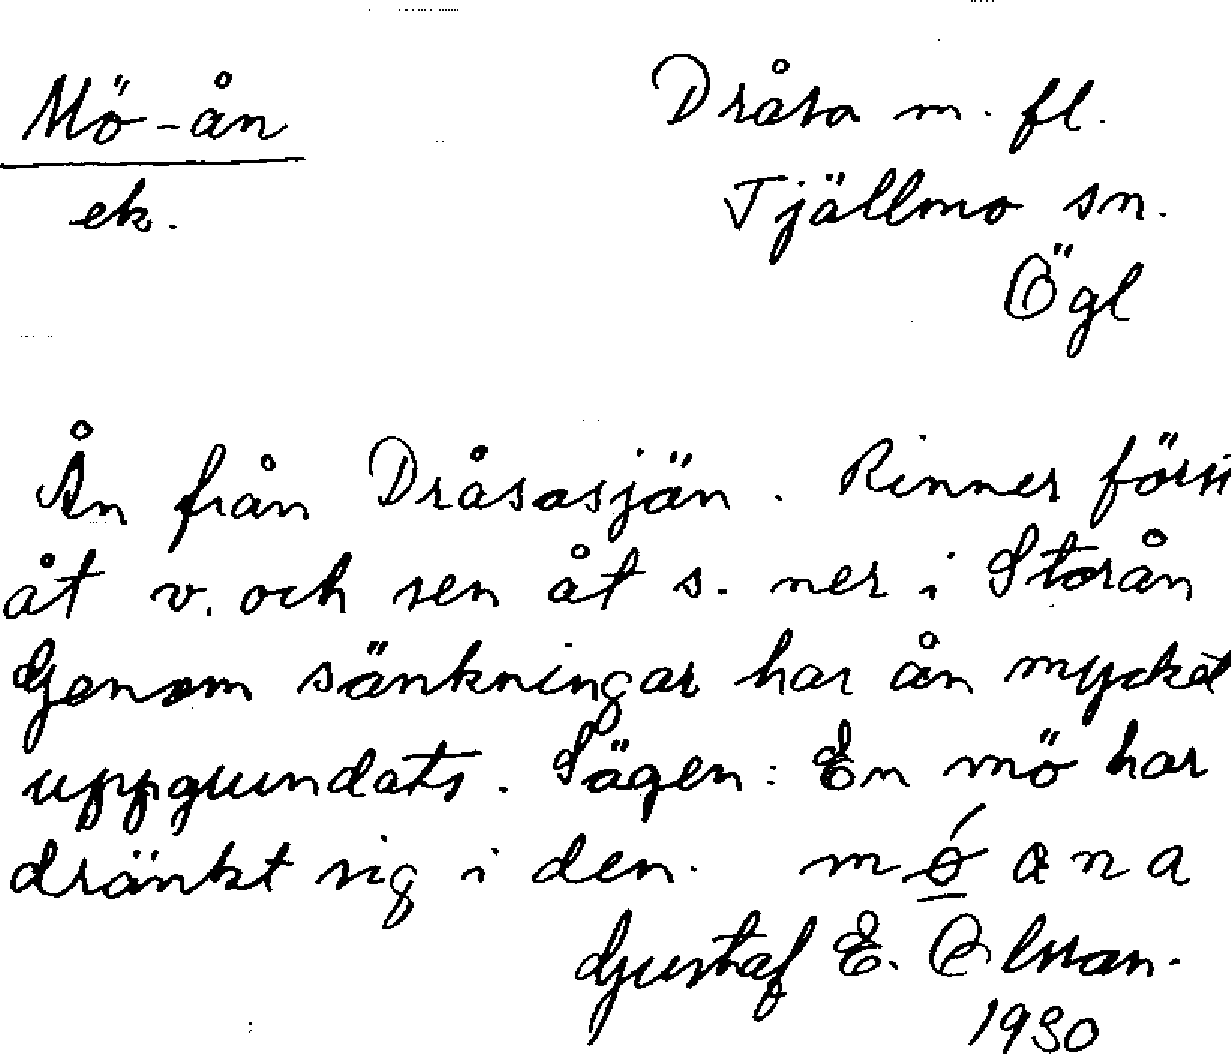 Mö-ån
ek.
Dråsa m. fl.
Tjällmo sn.
Ögl
Ån från Dråsasjän. Rinner först
åt v. och sen åt s. ner i Storån
Genom sänkningar har ån mycket
uppgrundats. Sägen: En mö har
dränkt sig i den. mö́ ana
Gustaf E. Olsson.
1930